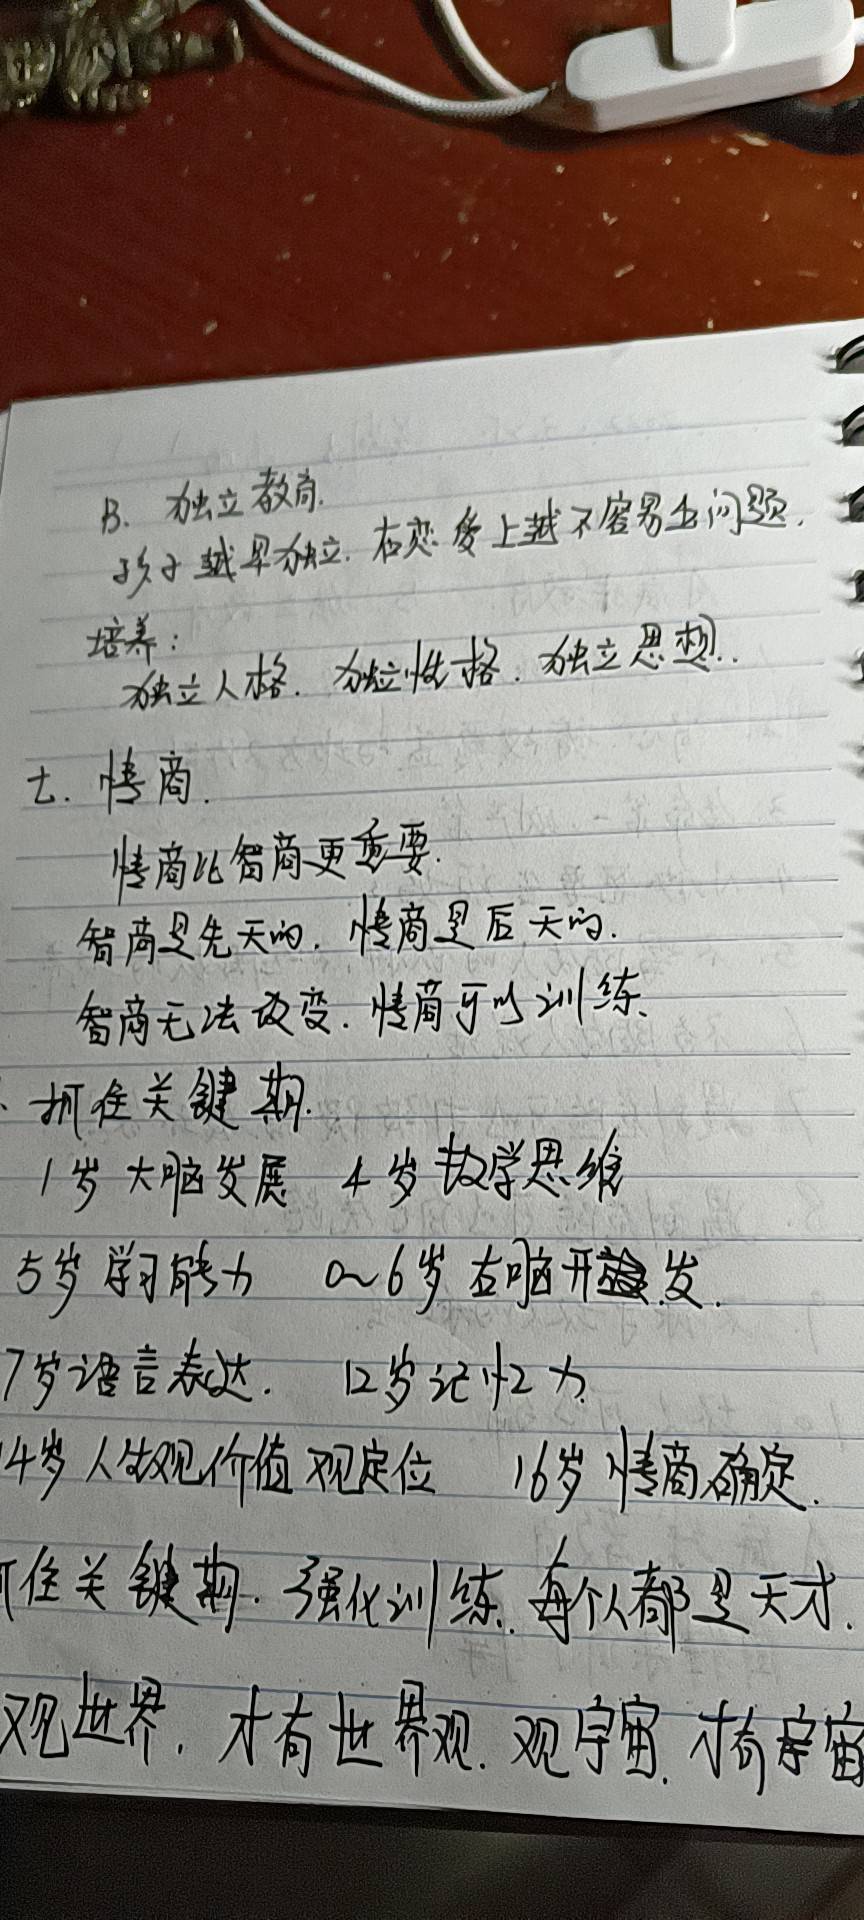 B. 独立教育.
孩子越早独立. 在恋爱上越不容易出问题.
培养:
独立人格. 独立性格. 独立思想.
七. 情商.
情商比智商更重要.
智商是先天的. 情商是后天的.
智商无法改变. 情商可以训练.
. 抓住关键期.
1岁大脑发展 4岁数学思维
5岁学习能力 0~6岁右脑开发.
7岁语言表达. 12岁记忆力.
14岁人生观价值观定位 16岁情商确定.
抓住关键期. 强化训练. 每个人都是天才.
观世界. 才有世界观. 观宇宙. 才有宇宙